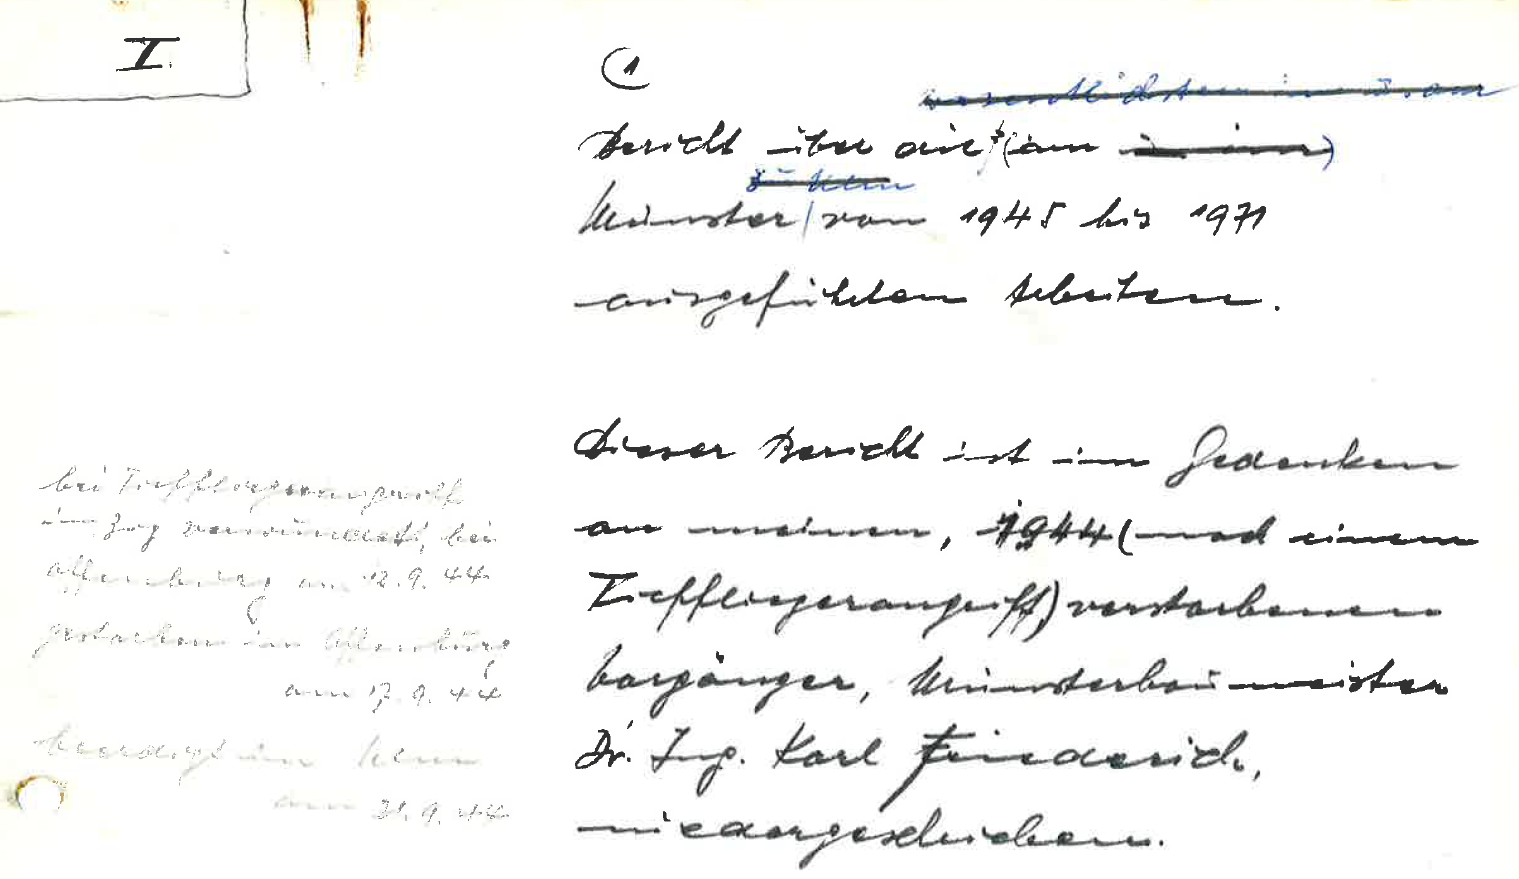 I.
1
Bericht über die (am
zu Ulm
Münster von 1945 bis 1971
ausgeführten Arbeiten.
Dieser Bericht ist im Gedenken
an meinen, 1944 (nach einem
Tieffliegerangriff) verstorbenen
Vorgänger, Münsterbaumeister
Dr. Ing. Karl Friederich,
niedergeschrieben.
bei Tieffliegerangriff
im Zug verwundet, bei
Offenburg am 12.9.44
gestorben in Offenburg
am 17.9.44
beerdigt in Ulm
am 21.9.44